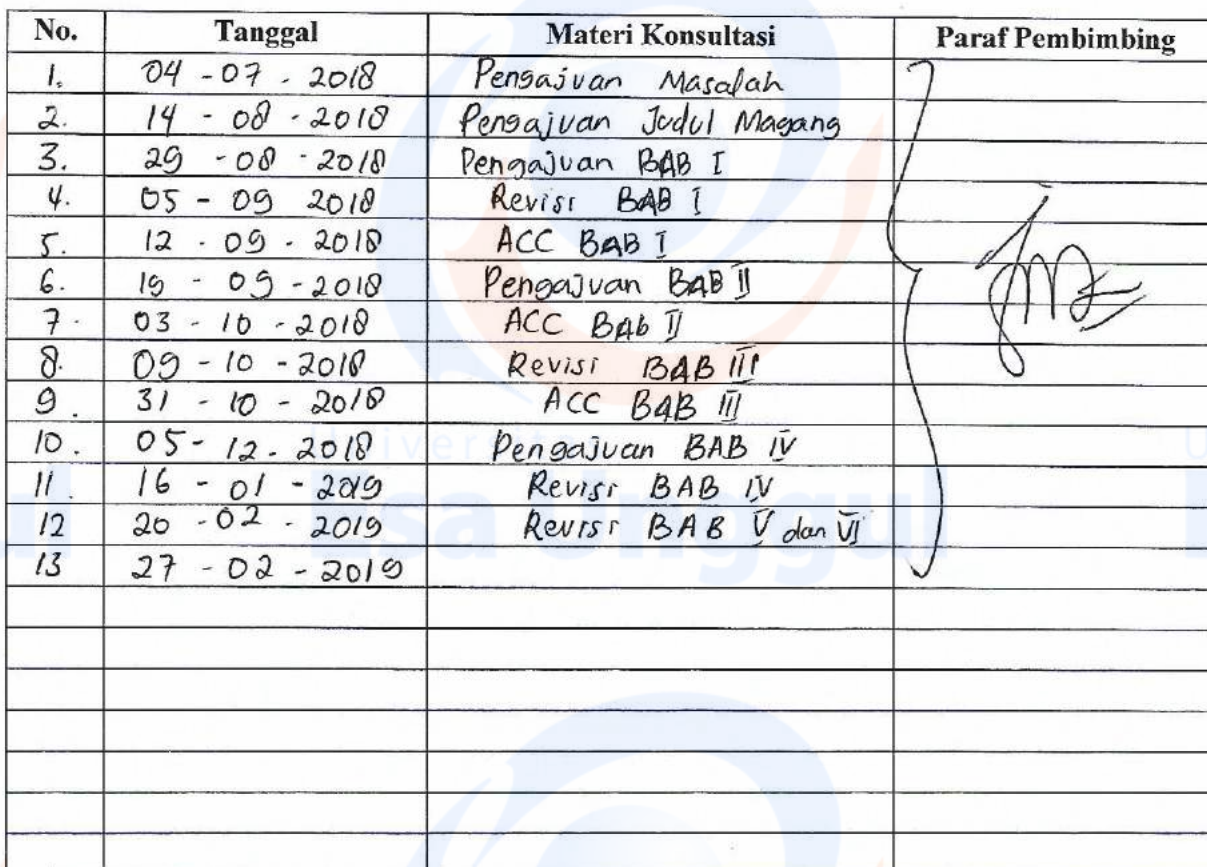 No. Tanggal Materi Konsultasi Paraf Pembimbing
1. 04 - 07 - 2018 Pengajuan Masalah
2. 14 - 08 - 2018 Pengajuan Judul Magang
3. 29 - 08 - 2018 Pengajuan BAB I
4. 05 - 09 2018 Revisi BAB I
5. 12 - 09 - 2018 ACC BAB I
6. 19 - 09 - 2018 Pengajuan BAB II
7. 03 - 10 - 2018 ACC BAb II
8. 09 - 10 - 2018 Revisi BAB III
9. 31 - 10 - 2018 ACC BAB III
10. 05 - 12 - 2018 Pengajuan BAB IV
11. 16 - 01 - 2019 Revisi BAB IV
12 20 - 02 - 2019 Revisi BAB V dan VI
13 27 - 02 - 2019
Universitas
Esa Unggul